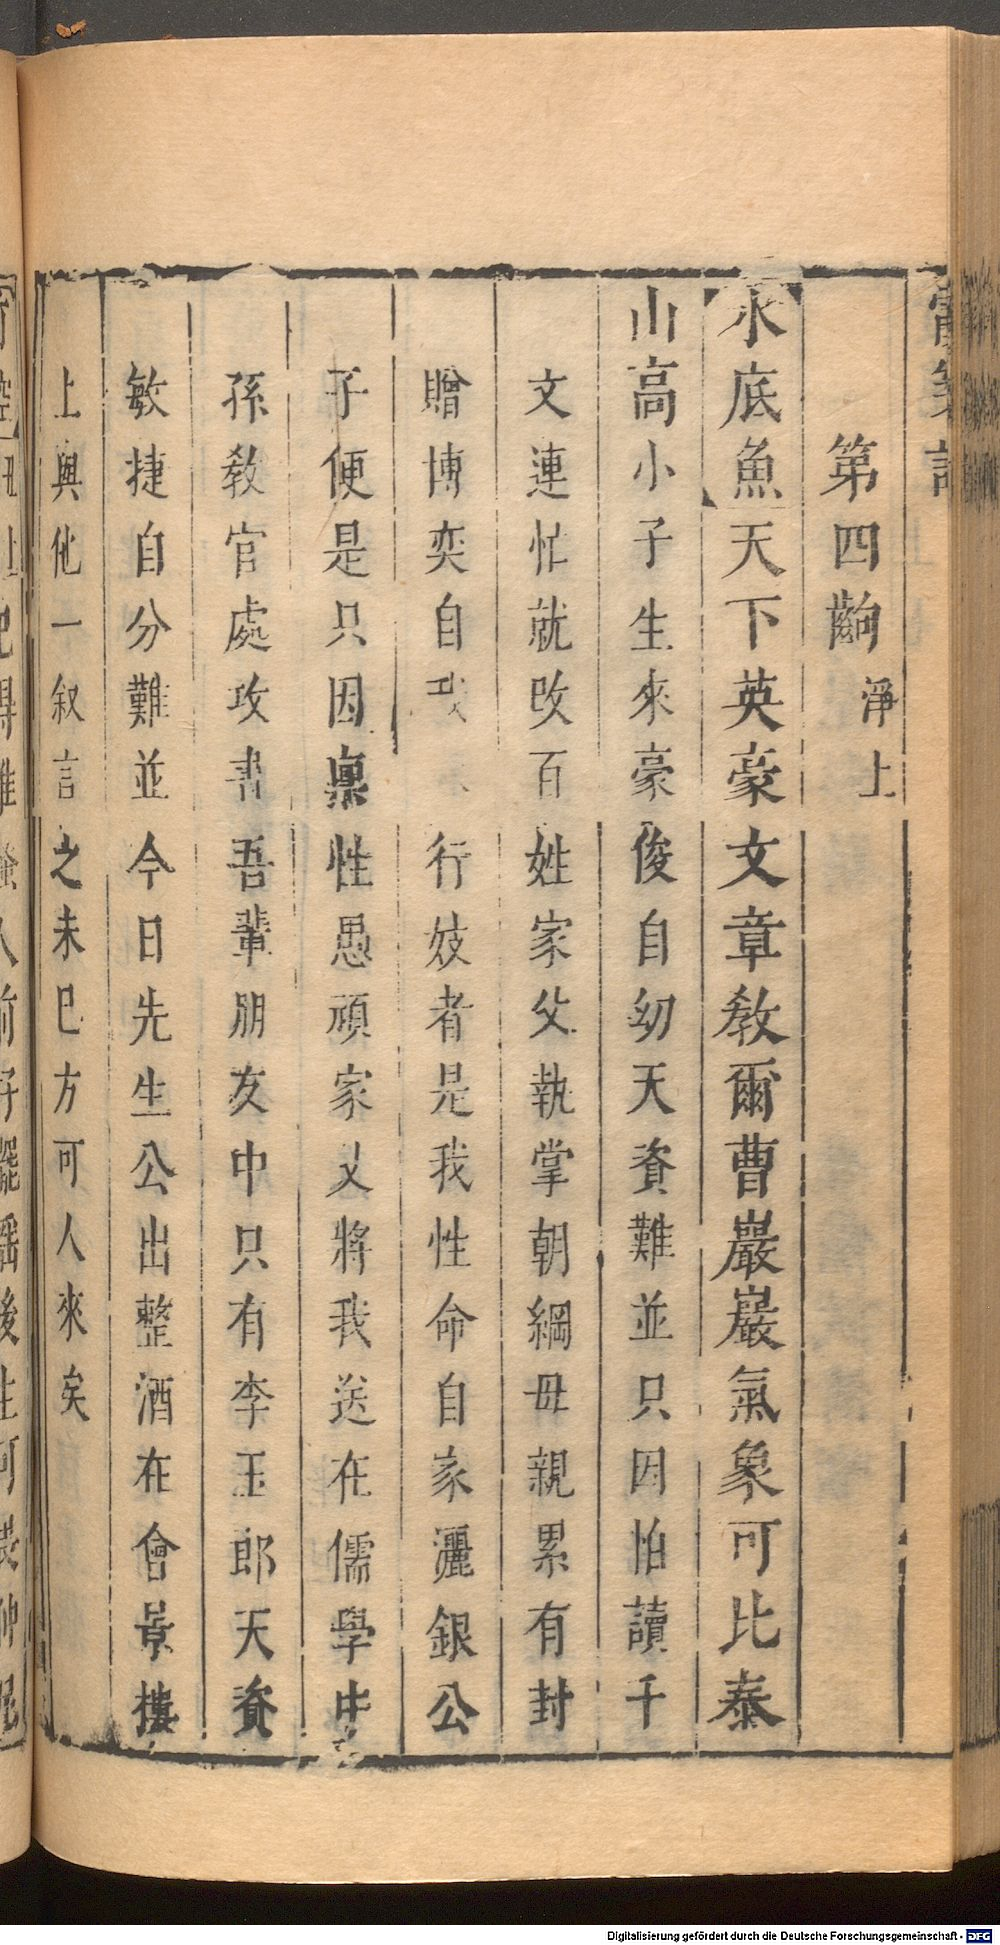 第四齣 淨上
水底魚天下英豪文章教爾曹巖巖氣象可比泰
山高小子生來豪俊自幼天資難並只因怕讀千
文連忙就改百姓家父執掌朝綱母親累有封
贈博奕自我行妓者是我性命自家灑銀公
子便是只因稟性愚頑家父將我送在儒學中
孫教官處攻書吾輩朋友中只有李玉郎天資
敏捷自分難並今日先生公出整酒在會景樓
上與他一叙言之未已方可人來矣
Digitalisierung gefördert durch die Deutsche Forschungsgemeinschaft - DFG